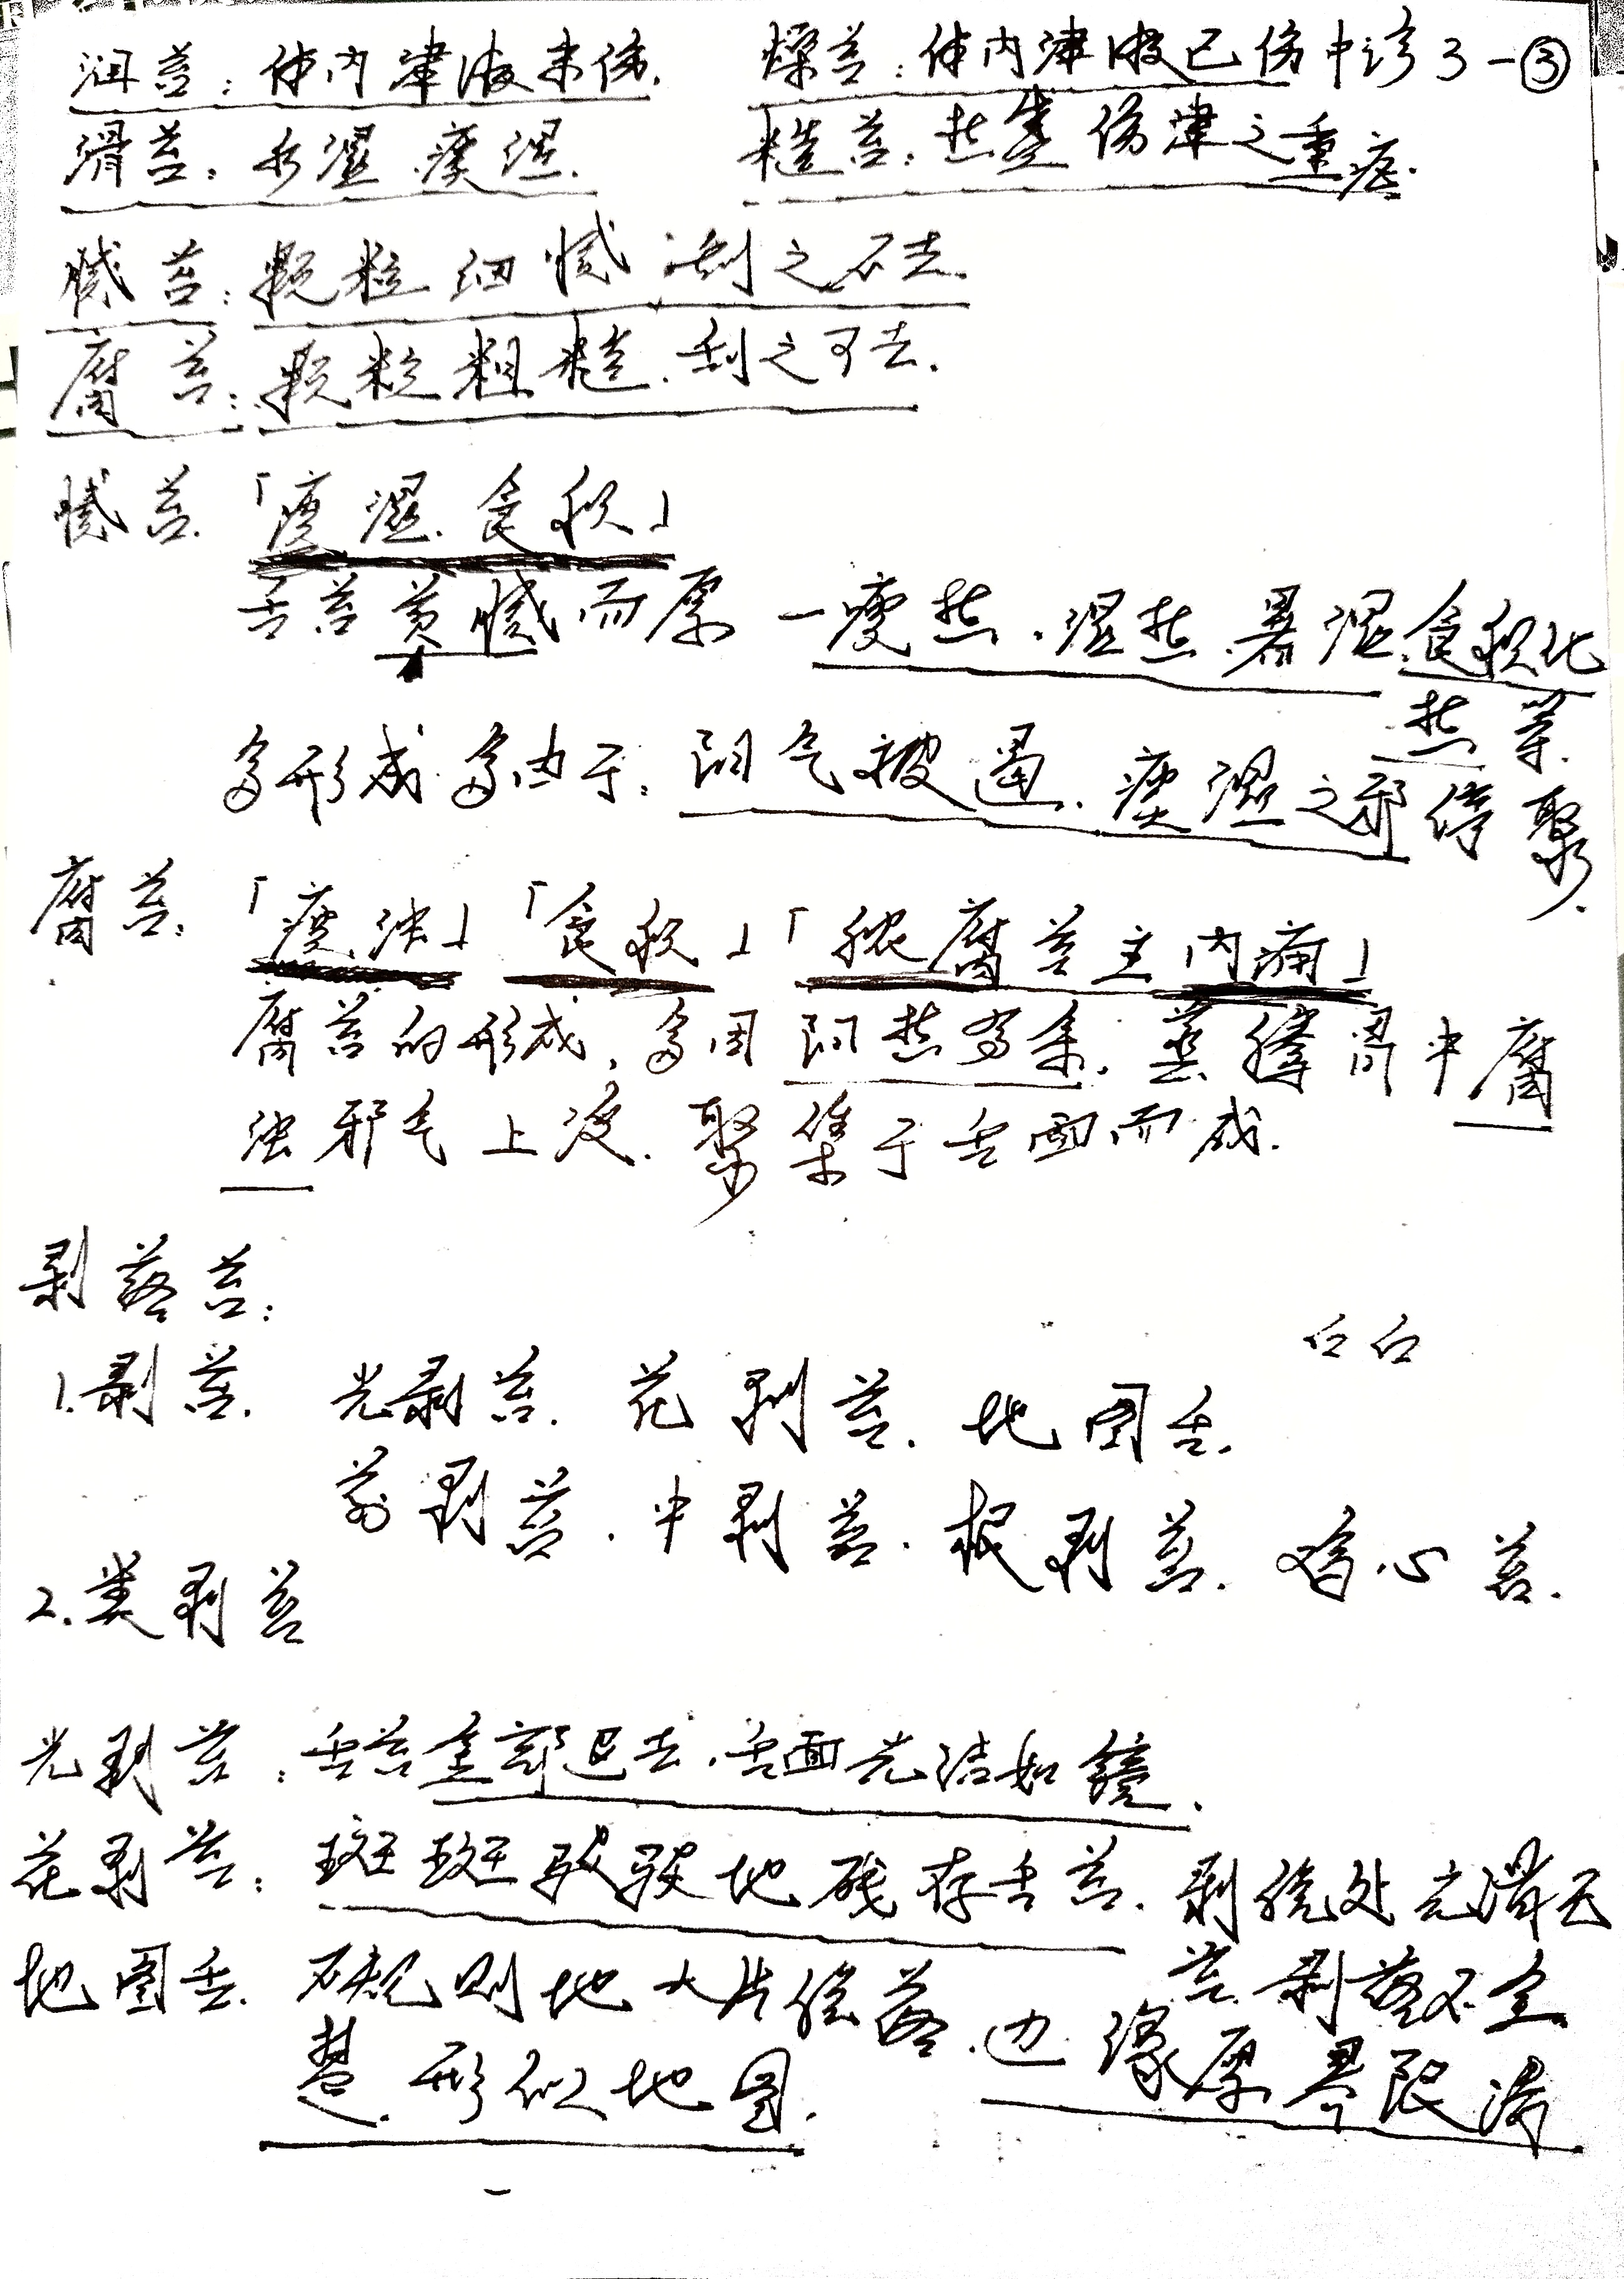 润苔：体内津液未伤. 燥苔：体内津液已伤 中诊3-③
滑苔：水湿.痰湿. 糙苔：热盛伤津之重症.
腻苔：颗粒细腻.刮之不去.
腐苔：颗粒粗糙.刮之可去.
腻苔.「痰湿.食积」
舌苔黄腻而厚 - 痰热.湿热.暑湿.食积化
热等.
多形成.多由于：阳气被遏.痰湿之邪停聚.
腐苔：「痰浊」「食积」「脓腐苔主内痈」
腐苔的形成,多因阳热有余.蒸腾胃中腐
浊邪气上泛.聚集于舌面而成.
剥落苔：
1.剥苔. 光剥苔.花剥苔.地图舌.
前剥苔.中剥苔.根剥苔.鸡心苔.
2.类剥苔
光剥苔：舌苔全部退去.舌面光洁如镜.
花剥苔：斑斑驳驳地残存舌苔.剥脱处光滑无
苔.剥落不全
地图舌.不规则地大片脱落.边缘厚界限清
楚.形似地图.